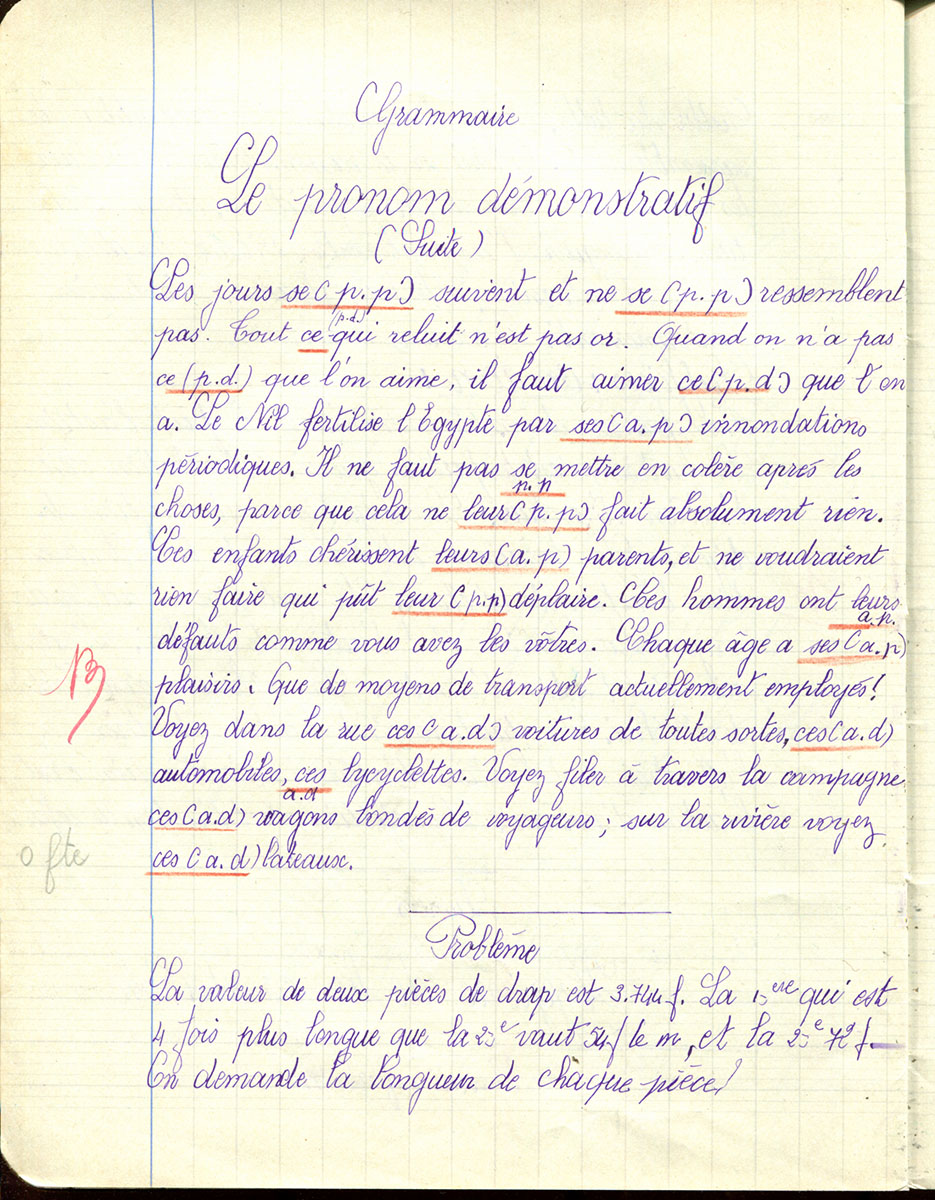 Grammaire
Le pronom démonstratif
(Suite)
Les jours se (p.p) suivent et ne se (p.p) ressemblent
pas. Tout ce (p.d.) qui reluit n'est pas or. Quand on n'a pas
ce (p.d.) que l'on aime, il faut aimer ce (p.d) que l'on
a. Le Nil fertilise l'Égypte par ses (a.p) innondations
périodiques. Il ne faut pas se mettre en colère après les
p.p
choses, parce que cela ne leur (p.p) fait absolument rien.
Ces enfants chérissent leurs (a.p) parents, et ne voudraient
rien faire qui pût leur (p.p) déplaire. Ces hommes ont leurs
a.p.
défauts comme vous avez les vôtres. Chaque âge a ses (a.p)
plaisirs. Que de moyens de transport actuellement employés!
B
Voyez dans la rue ces (a.d) voitures de toutes sortes, ces (a.d)
automobiles, ces bycyclettes. Voyez filer à travers la campagne
a.d
ces (a.d) wagons bondés de voyageurs; sur la rivière voyez
0 fte
ces (a.d) bateaux.
Problème
La valeur de deux pièces de drap est 3.744 f. La 1ère qui est
4 fois plus longue que la 2e vaut 54 f le m, et la 2e 72 f.
On demande la longueur de chaque pièce!